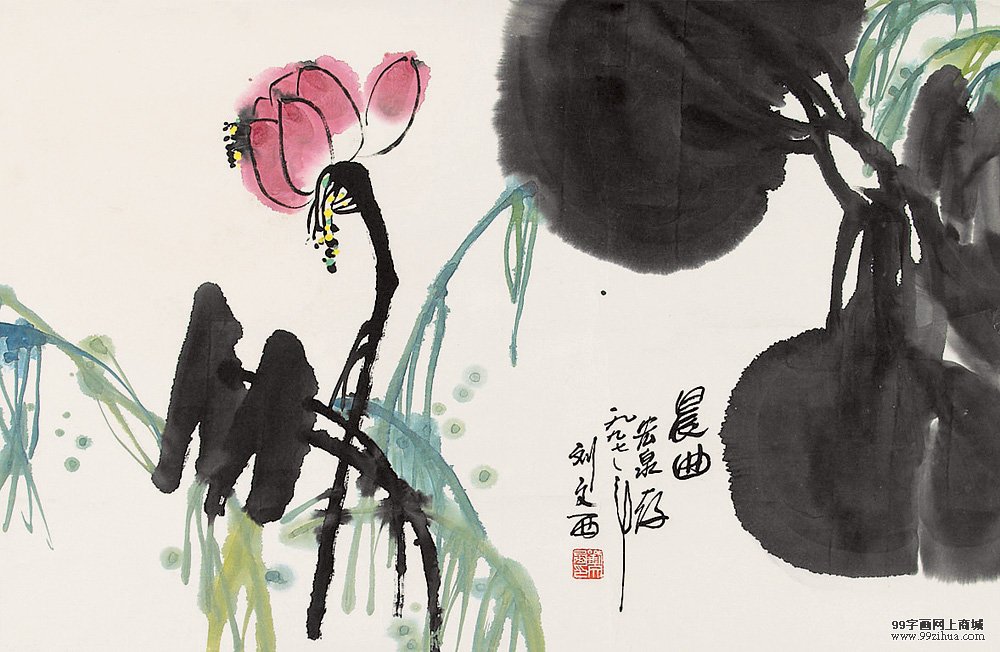 晨曲
宏泉存
一九九七年
刘文西
99字画网上商城
www.99zihua.com